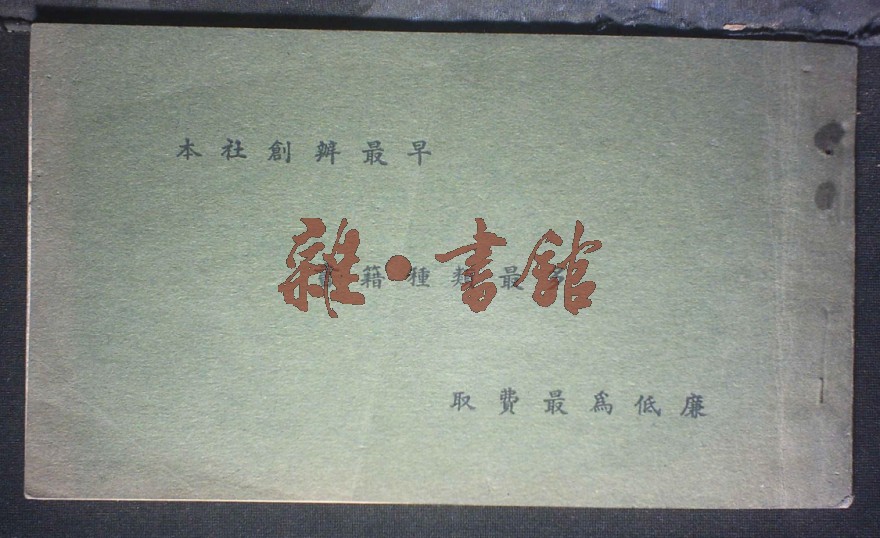 本社創辦最早
書籍種類最多
取費最爲低廉
雜·書館